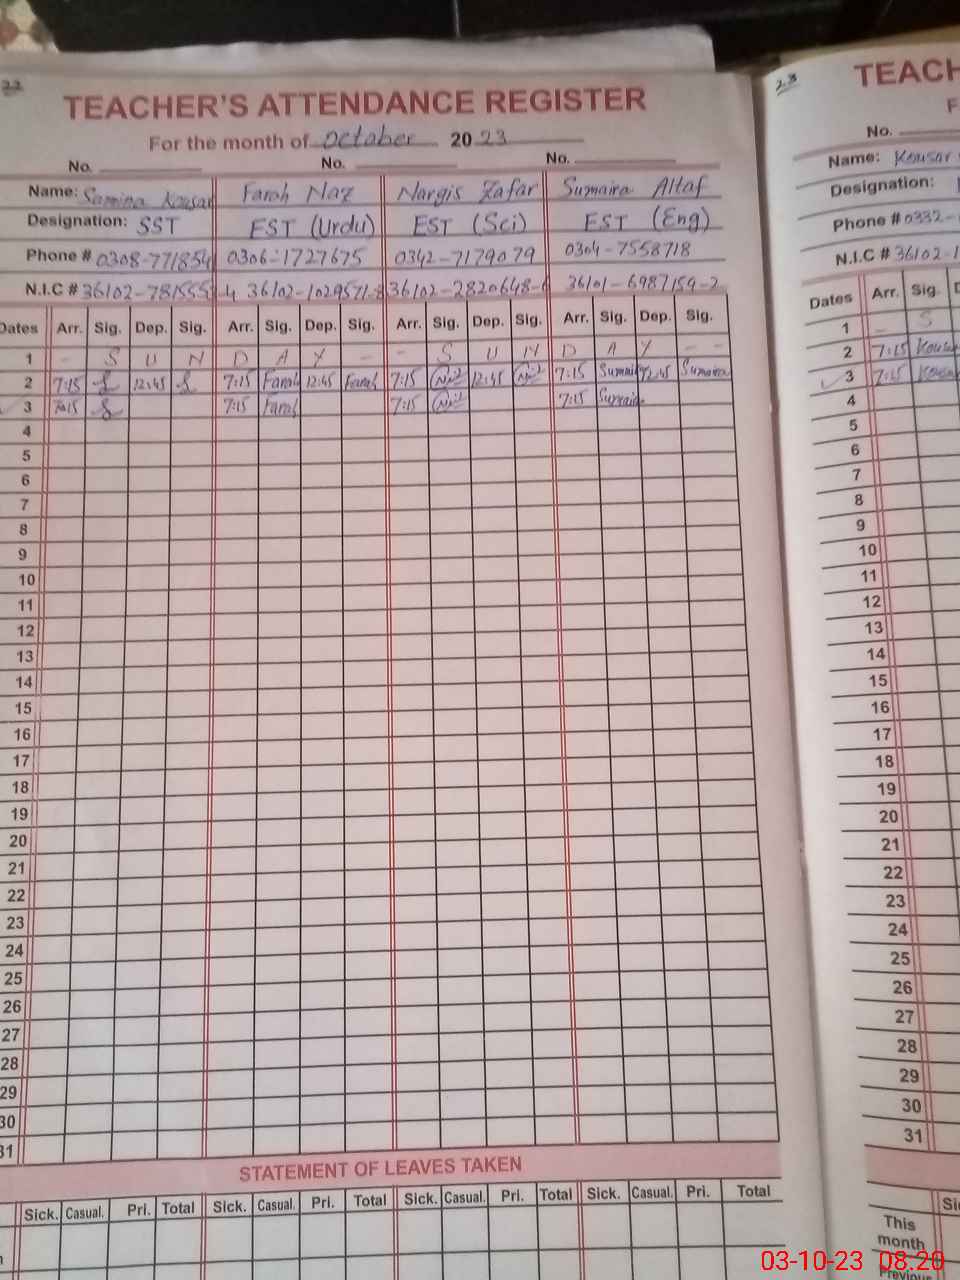 22
TEACHER'S ATTENDANCE REGISTER
For the month of October 20 23
No. No. No.
Name: Samina Kousar Farah Naz Nargis Zafar Sumaira Altaf
Designation: SST EST (Urdu) EST (Sci) EST (Eng)
Phone # 0308-771854 0306-1727675 0342-7179079 0304-7558718
N.I.C # 36102-781555 4 36102-1029571-8 36102-2820648- 36101-6987159-2
Dates Arr. Sig. Dep. Sig. Arr. Sig. Dep. Sig. Arr. Sig. Dep. Sig. Arr. Sig. Dep. Sig.
1 - S U N D A Y - - S U N D A Y - -
2 7:15 12:45 7:15 Farah 12:45 Farah 7:15 12:45 7:15 Sumaira 12:45 Sumaira
3 7:15 7:15 Farah 7:15 7:15 Sumaira
4
5
6
7
8
9
10
11
12
13
14
15
16
17
18
19
20
21
22
23
24
25
26
27
28
29
30
31
STATEMENT OF LEAVES TAKEN
Sick. Casual. Pri. Total Sick. Casual. Pri. Total Sick. Casual. Pri. Total Sick. Casual. Pri. Total
23
TEACH
F
No.
Name: Kousar
Designation:
Phone # 0332-
N.I.C # 36102-1
Dates Arr. Sig. D
1 - S
2 7:15 Kousar
3 7:15 Kousar
4
5
6
7
8
9
10
11
12
13
14
15
16
17
18
19
20
21
22
23
24
25
26
27
28
29
30
31
Si
This
month
Previous
03-10-23 08.20